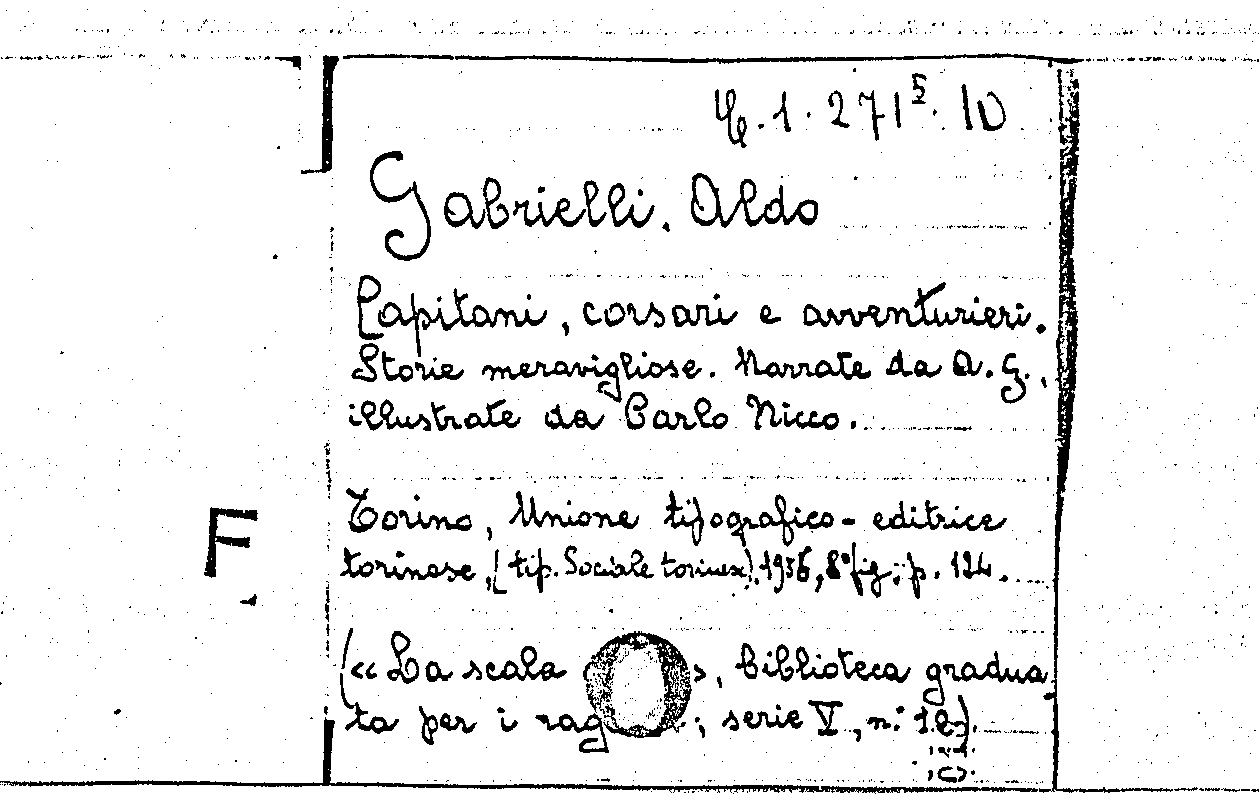 1. 271⁵. 10
Gabrielli. Aldo
Capitani, corsari e avventurieri.
Storie meravigliose. Narrate da A. G.,
illustrate da Carlo Nicco.
Torino, Unione tipografico-editrice
torinese, (tip. Sociale torinese), 1956, 8° fig., p. 124.
F
(«La scala », biblioteca gradua
ta per i rag ; serie V, n.